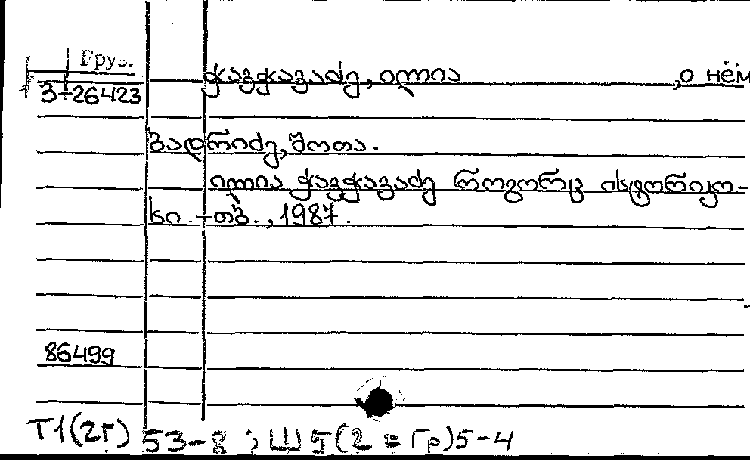 Груз.
ჭავჭავაძე, ილია , о нём
3-26423
ბადრიძე, შოთა.
ილია ჭავჭავაძე როგორც ისტორიკო-
სი. -თბ., 1987.
86499
Т1(2Г) 53-8 ; Ш5(2=Гр)5-4